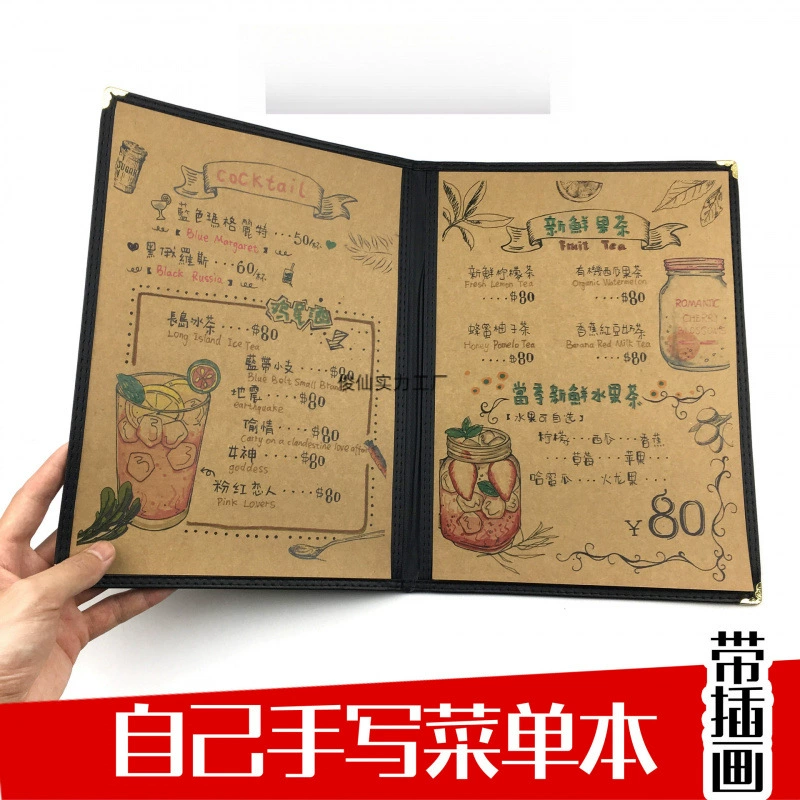 cocktail
藍色瑪格麗特...50/杯
【Blue Margaret】
黑俄羅斯...60/杯
【Black Russia】
鸡尾酒
長島冰茶....$80
Long Island Ice Tea
藍帶小支....$80
Blue Belt Small Bran
俊仙实力工厂
地震....$80
earthquake
偷情....$80
Carry on a clandestine love affair
女神....$80
goddess
粉红恋人....$80
Pink Lovers
新鮮果茶
Fruit Tea
新鮮柠檬茶
Fresh Lemon Tea
....$80
有機西瓜果茶
Organic Watermelon
....$80
蜂蜜柚子茶
Honey Pomelo Tea
....$80
香蕉紅豆奶茶
Banana Red Milk Tea
....$80
ROMANTIC
CHERRY
當季新鮮水果茶
【水果可自选】
柠檬...西瓜...香蕉
...草莓...苹果...
哈蜜瓜...火龙果...
¥80
带插画
自己手写菜单本